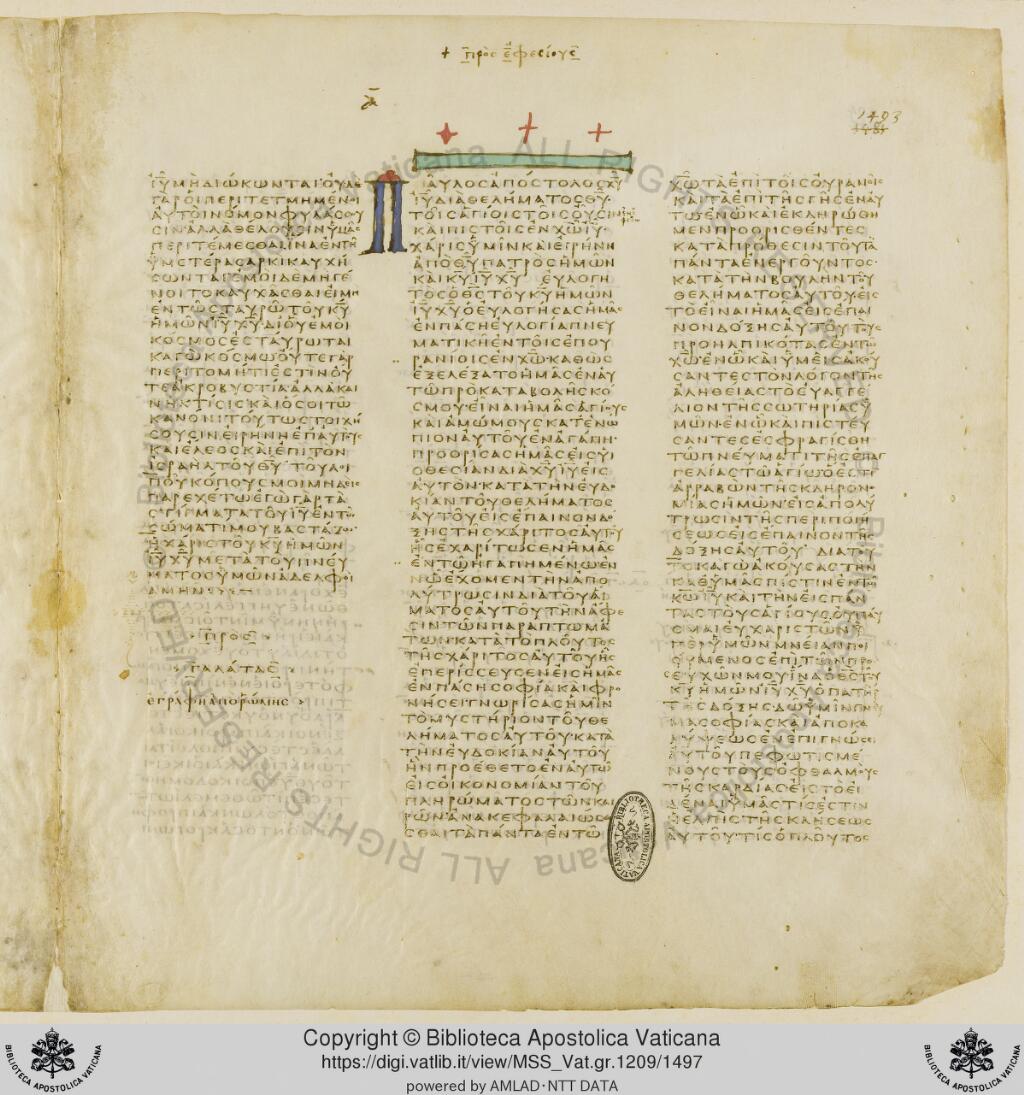 + προς εφεσιους
α
1493
ΙΥΜΗΔΙΩΚΩΝΤΑΙΟΥΔΕ
ΓΑΡΟΙΠΕΡΙΤΕΤΜΗΜΕΝΟΙ
ΑΥΤΟΙΝΟΜΟΝΦΥΛΑϹϹΟΥ
ϹΙΝΑΛΛΑΘΕΛΟΥϹΙΝΥΜΑϹ
ΠΕΡΙΤΕΜΕϹΘΑΙΙΝΑΕΝΤΗ
ΥΜΕΤΕΡΑϹΑΡΚΙΚΑΥΧΗ
ϹΩΝΤΑΙΕΜΟΙΔΕΜΗΓΕ
ΝΟΙΤΟΚΑΥΧΑϹΘΑΙΕΙΜΗ
ΕΝΤΩϹΤΑΥΡΩΤΟΥΚΥ
ΗΜΩΝΙΥΧΥΔΙΟΥΕΜΟΙ
ΚΟϹΜΟϹΕϹΤΑΥΡΩΤΑΙ
ΚΑΓΩΚΟϹΜΩΟΥΤΕΓΑΡ
ΠΕΡΙΤΟΜΗΤΙΕϹΤΙΝΟΥ
ΤΕΑΚΡΟΒΥϹΤΙΑΑΛΛΑΚΑΙ
ΝΗΚΤΙϹΙϹΚΑΙΟϹΟΙΤΩ
ΚΑΝΟΝΙΤΟΥΤΩϹΤΟΙΧΗ
ϹΟΥϹΙΝΕΙΡΗΝΗΕΠΑΥΤΟΥϹ
ΚΑΙΕΛΕΟϹΚΑΙΕΠΙΤΟΝ
ΙϹΡΑΗΛΤΟΥΘΥ ΤΟΥΛΟΙ
ΠΟΥΚΟΠΟΥϹΜΟΙΜΗΔΕΙϹ
ΠΑΡΕΧΕΤΩΕΓΩΓΑΡΤΑ
ϹΤΙΓΜΑΤΑΤΟΥΙΥΕΝΤΩ
ϹΩΜΑΤΙΜΟΥΒΑϹΤΑΖΩ·
ΗΧΑΡΙϹΤΟΥΚΥΗΜΩΝ
ΙΥΧΥΜΕΤΑΤΟΥΠΝΕΥ
ΜΑΤΟϹΥΜΩΝΑΔΕΛΦΟΙ
ΑΜΗΝ
ΠΡΟϹ
ΓΑΛΑΤΑϹ
ΕΓΡΑΦΗΑΠΟΡΩΜΗϹ
ΠΑΥΛΟϹΑΠΟϹΤΟΛΟϹΧΥ
ΙΥΔΙΑΘΕΛΗΜΑΤΟϹΘΥ·
ΤΟΙϹΑΓΙΟΙϹΤΟΙϹΟΥϹΙΝ
ΚΑΙΠΙϹΤΟΙϹΕΝΧΩΙΥ·
ΧΑΡΙϹΥΜΙΝΚΑΙΕΙΡΗΝΗ
ΑΠΟΘΥΠΑΤΡΟϹΗΜΩΝ
ΚΑΙΚΥΙΥΧΥ ΕΥΛΟΓΗ
ΤΟϹΟΘϹΤΟΥΚΥΗΜΩΝ
ΙΥΧΥΟΕΥΛΟΓΗϹΑϹΗΜΑϹ
ΕΝΠΑϹΗΕΥΛΟΓΙΑΠΝΕΥ
ΜΑΤΙΚΗΕΝΤΟΙϹΕΠΟΥ
ΡΑΝΙΟΙϹΕΝΧΩ·ΚΑΘΩϹ
ΕΞΕΛΕΞΑΤΟΗΜΑϹΕΝΑΥ
ΤΩΠΡΟΚΑΤΑΒΟΛΗϹΚΟ
ϹΜΟΥ·ΕΙΝΑΙΗΜΑϹΑΓΙΟΥϹ
ΚΑΙΑΜΩΜΟΥϹΚΑΤΕΝΩ
ΠΙΟΝΑΥΤΟΥΕΝΑΓΑΠΗ·
ΠΡΟΟΡΙϹΑϹΗΜΑϹΕΙϹΥΙ
ΟΘΕϹΙΑΝΔΙΑΧΥΙΥΕΙϹ
ΑΥΤΟΝ·ΚΑΤΑΤΗΝΕΥΔΟ
ΚΙΑΝΤΟΥΘΕΛΗΜΑΤΟϹ
ΑΥΤΟΥΕΙϹΕΠΑΙΝΟΝΔΟ
ΞΗϹΤΗϹΧΑΡΙΤΟϹΑΥΤΟΥ
ΗϹΕΧΑΡΙΤΩϹΕΝΗΜΑϹ
ΕΝΤΩΗΓΑΠΗΜΕΝΩΕΝ
ΩΕΧΟΜΕΝΤΗΝΑΠΟ
ΛΥΤΡΩϹΙΝΔΙΑΤΟΥΑΙ
ΜΑΤΟϹΑΥΤΟΥΤΗΝΑΦΕ
ϹΙΝΤΩΝΠΑΡΑΠΤΩΜΑ
ΤΩΝΚΑΤΑΤΟΠΛΟΥΤΟϹ
ΤΗϹΧΑΡΙΤΟϹΑΥΤΟΥΗϹ
ΕΠΕΡΙϹϹΕΥϹΕΝΕΙϹΗΜΑϹ
ΕΝΠΑϹΗϹΟΦΙΑΚΑΙΦΡΟ
ΝΗϹΕΙΓΝΩΡΙϹΑϹΗΜΙΝ
ΤΟΜΥϹΤΗΡΙΟΝΤΟΥΘΕ
ΛΗΜΑΤΟϹΑΥΤΟΥ·ΚΑΤΑ
ΤΗΝΕΥΔΟΚΙΑΝΑΥΤΟΥ
ΗΝΠΡΟΕΘΕΤΟΕΝΑΥΤΩ
ΕΙϹΟΙΚΟΝΟΜΙΑΝΤΟΥ
ΠΛΗΡΩΜΑΤΟϹΤΩΝΚΑΙ
ΡΩΝΑΝΑΚΕΦΑΛΑΙΩϹΑ
ϹΘΑΙΤΑΠΑΝΤΑΕΝΤΩ
ΧΩΤΑΕΠΙΤΟΙϹΟΥΡΑΝΟΙϹ
ΚΑΙΤΑΕΠΙΤΗϹΓΗϹΕΝΑΥ
ΤΩΕΝΩΚΑΙΕΚΛΗΡΩΘΗ
ΜΕΝΠΡΟΟΡΙϹΘΕΝΤΕϹ
ΚΑΤΑΠΡΟΘΕϹΙΝΤΟΥΤΑ
ΠΑΝΤΑΕΝΕΡΓΟΥΝΤΟϹ·
ΚΑΤΑΤΗΝΒΟΥΛΗΝΤΟΥ
ΘΕΛΗΜΑΤΟϹΑΥΤΟΥΕΙϹ
ΤΟΕΙΝΑΙΗΜΑϹΕΙϹΕΠΑΙ
ΝΟΝΔΟΞΗϹΑΥΤΟΥΤΟΥϹ
ΠΡΟΗΛΠΙΚΟΤΑϹΕΝΤΩ
ΧΩΕΝΩΚΑΙΥΜΕΙϹΑΚΟΥ
ϹΑΝΤΕϹΤΟΝΛΟΓΟΝΤΗϹ
ΑΛΗΘΕΙΑϹΤΟΕΥΑΓΓΕ
ΛΙΟΝΤΗϹϹΩΤΗΡΙΑϹΥ
ΜΩΝ·ΕΝΩΚΑΙΠΙϹΤΕΥ
ϹΑΝΤΕϹΕϹΦΡΑΓΙϹΘΗ
ΤΩΠΝΕΥΜΑΤΙΤΗϹΕΠΑΓ
ΓΕΛΙΑϹΤΩΑΓΙΩΟΕϹΤΙ
ΑΡΡΑΒΩΝΤΗϹΚΛΗΡΟΝΟ
ΜΙΑϹΗΜΩΝ·ΕΙϹΑΠΟΛΥ
ΤΡΩϹΙΝΤΗϹΠΕΡΙΠΟΙΗ
ϹΕΩϹΕΙϹΕΠΑΙΝΟΝΤΗϹ
ΔΟΞΗϹΑΥΤΟΥ ΔΙΑΤΟΥ
ΤΟΚΑΓΩΑΚΟΥϹΑϹΤΗΝ
ΚΑΘΥΜΑϹΠΙϹΤΙΝΕΝΤΩ
ΚΩΙΥΚΑΙΤΗΝΕΙϹΠΑΝ
ΤΑϹΤΟΥϹΑΓΙΟΥϹΟΥΠΑΥ
ΟΜΑΙΕΥΧΑΡΙϹΤΩΝΥ
ΠΕΡΥΜΩΝΜΝΕΙΑΝΠΟΙ
ΟΥΜΕΝΟϹΕΠΙΤΩΝΠΡΟ
ϹΕΥΧΩΝΜΟΥΙΝΑΟΘϹΤΟΥ
ΚΥΗΜΩΝΙΥΧΥΟΠΑΤΗΡ
ΤΗϹΔΟΞΗϹΔΩΥΜΙΝΠΝΕΥ
ΜΑϹΟΦΙΑϹΚΑΙΑΠΟΚΑ
ΛΥΨΕΩϹΕΝΕΠΙΓΝΩϹΕΙ
ΑΥΤΟΥΠΕΦΩΤΙϹΜΕ
ΝΟΥϹΤΟΥϹΟΦΘΑΛΜΟΥϹ
ΤΗϹΚΑΡΔΙΑϹΕΙϹΤΟΕΙ
ΔΕΝΑΙΥΜΑϹΤΙϹΕϹΤΙΝ
ΗΕΛΠΙϹΤΗϹΚΛΗϹΕΩϹ
ΑΥΤΟΥ·ΤΙϹΟΠΛΟΥΤΟϹ
BIBLIOTHECA APOSTOLICA VATICANA
Copyright © Biblioteca Apostolica Vaticana
https://digi.vatlib.it/view/MSS_Vat.gr.1209/1497
powered by AMLAD·NTT DATA
BIBLIOTECA APOSTOLICA VATICANA
BIBLIOTECA APOSTOLICA VATICANA